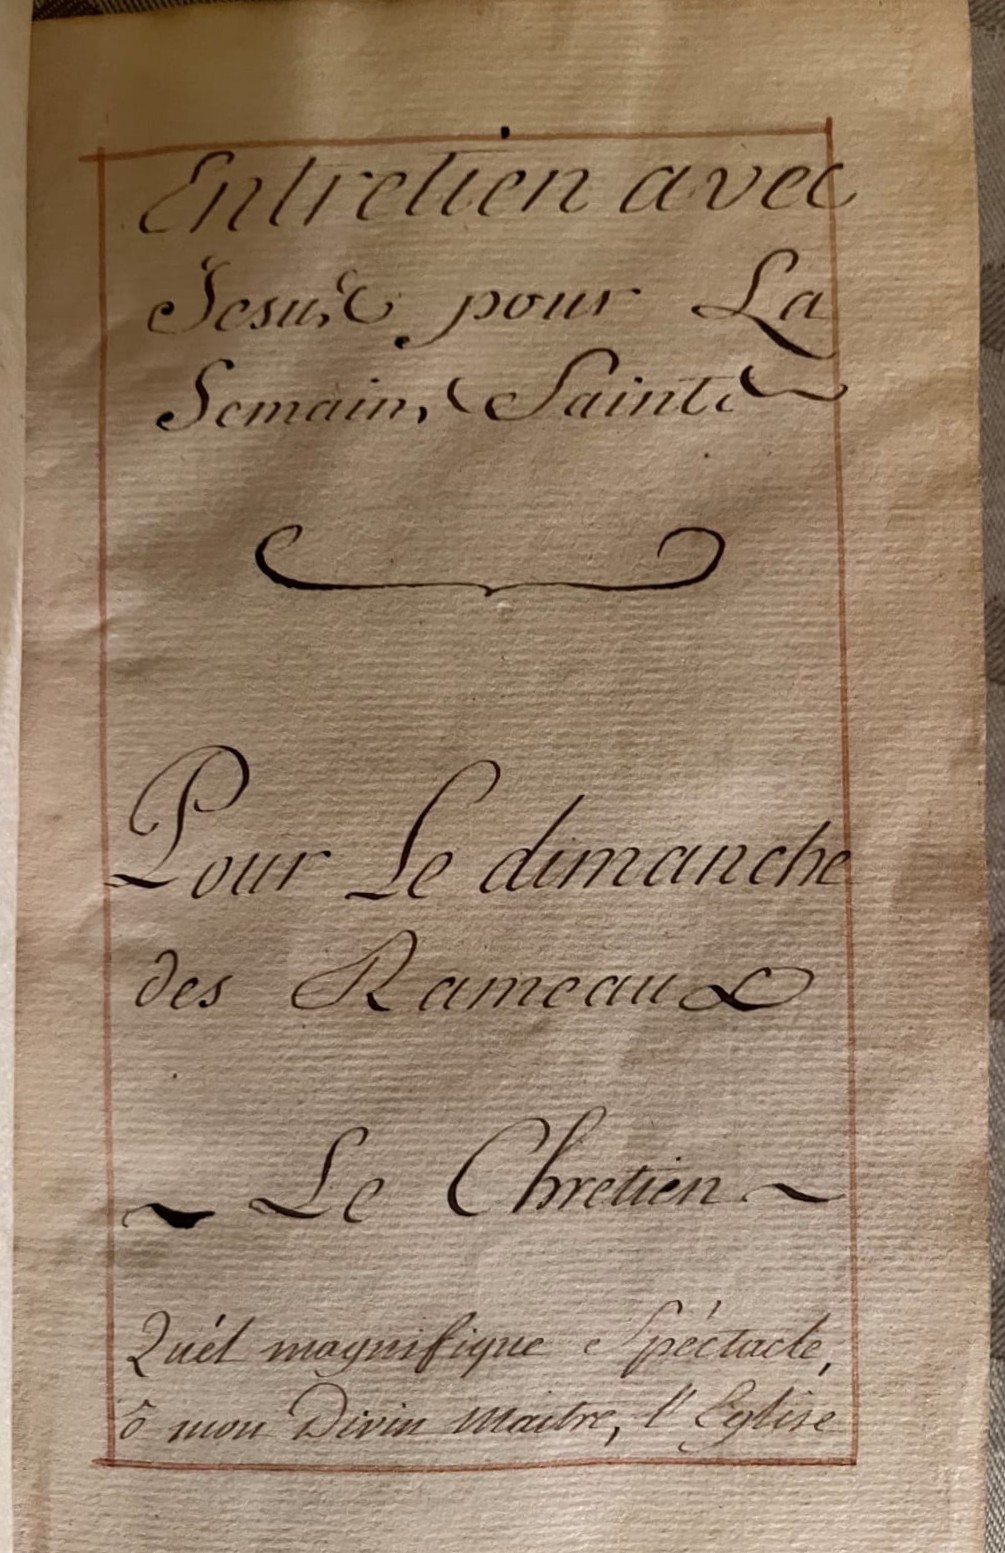 Entretien avec
Jesus pour La
Semaine Sainte
Pour Le dimanche
des Rameaux
Le Chretien
Quél magnifique Spéctacle,
ô mon Divin Maitre, l'Eglise